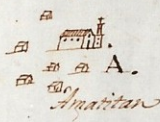 A.
Amatitan